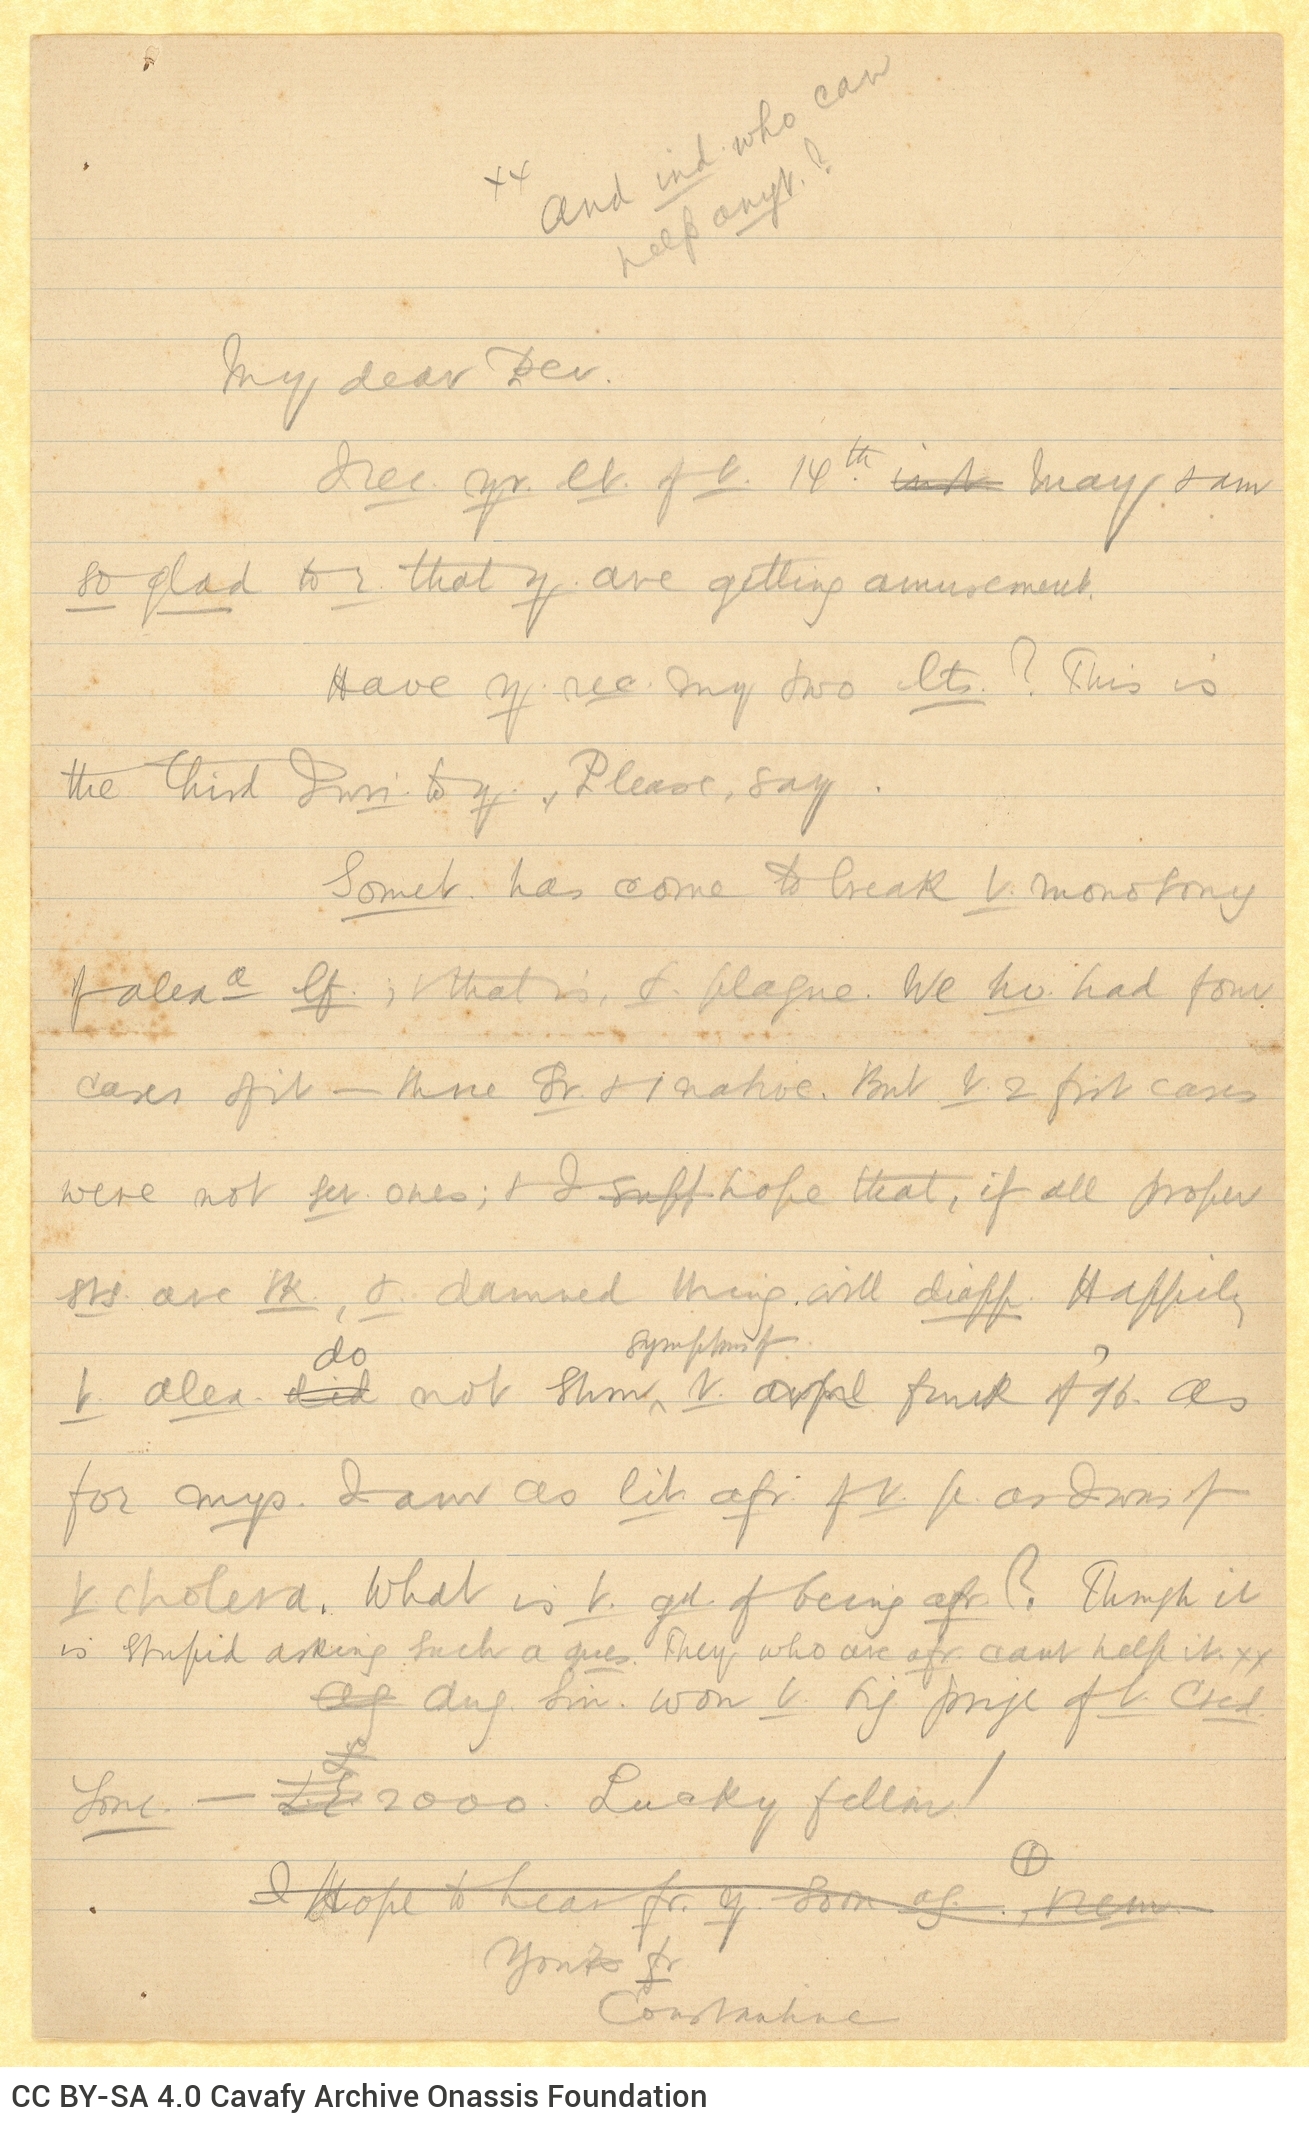 xx And ind. who can
help anyt.?
My dear Per.
I rec. yr. lt. of t. 14th. inst. May, & am
so glad to r. that y. are getting amusement.
Have y. rec. my two lts.? This is
the third I wri. to y. Please, say.
Somet. has come to break t. monotony
of Alexa lf.; that is, t. plague. We hv. had four
cases of it — three Gr. & 1 native. But t. 2 first cases
were not ser. ones; & I supp hope that, if all proper
sts. are tk., t. damned thing will disapp. Happily
do symptms of
t. Alex. did not show t. awful funk of '96. As
for mys. I am as lit. afr. of t. p. as I was of
t. cholera. What is t. gd. of being afr.? Though it
is stupid asking such a ques. They who are afr. cant help it. xx
Ag Aug. Sin. won t. big prize of t. Cred.
Fonc. — 2000. Lucky fellow!
I Hope to hear fr. y. soon ag.
Yours fr
Constantine
CC BY-SA 4.0 Cavafy Archive Onassis Foundation